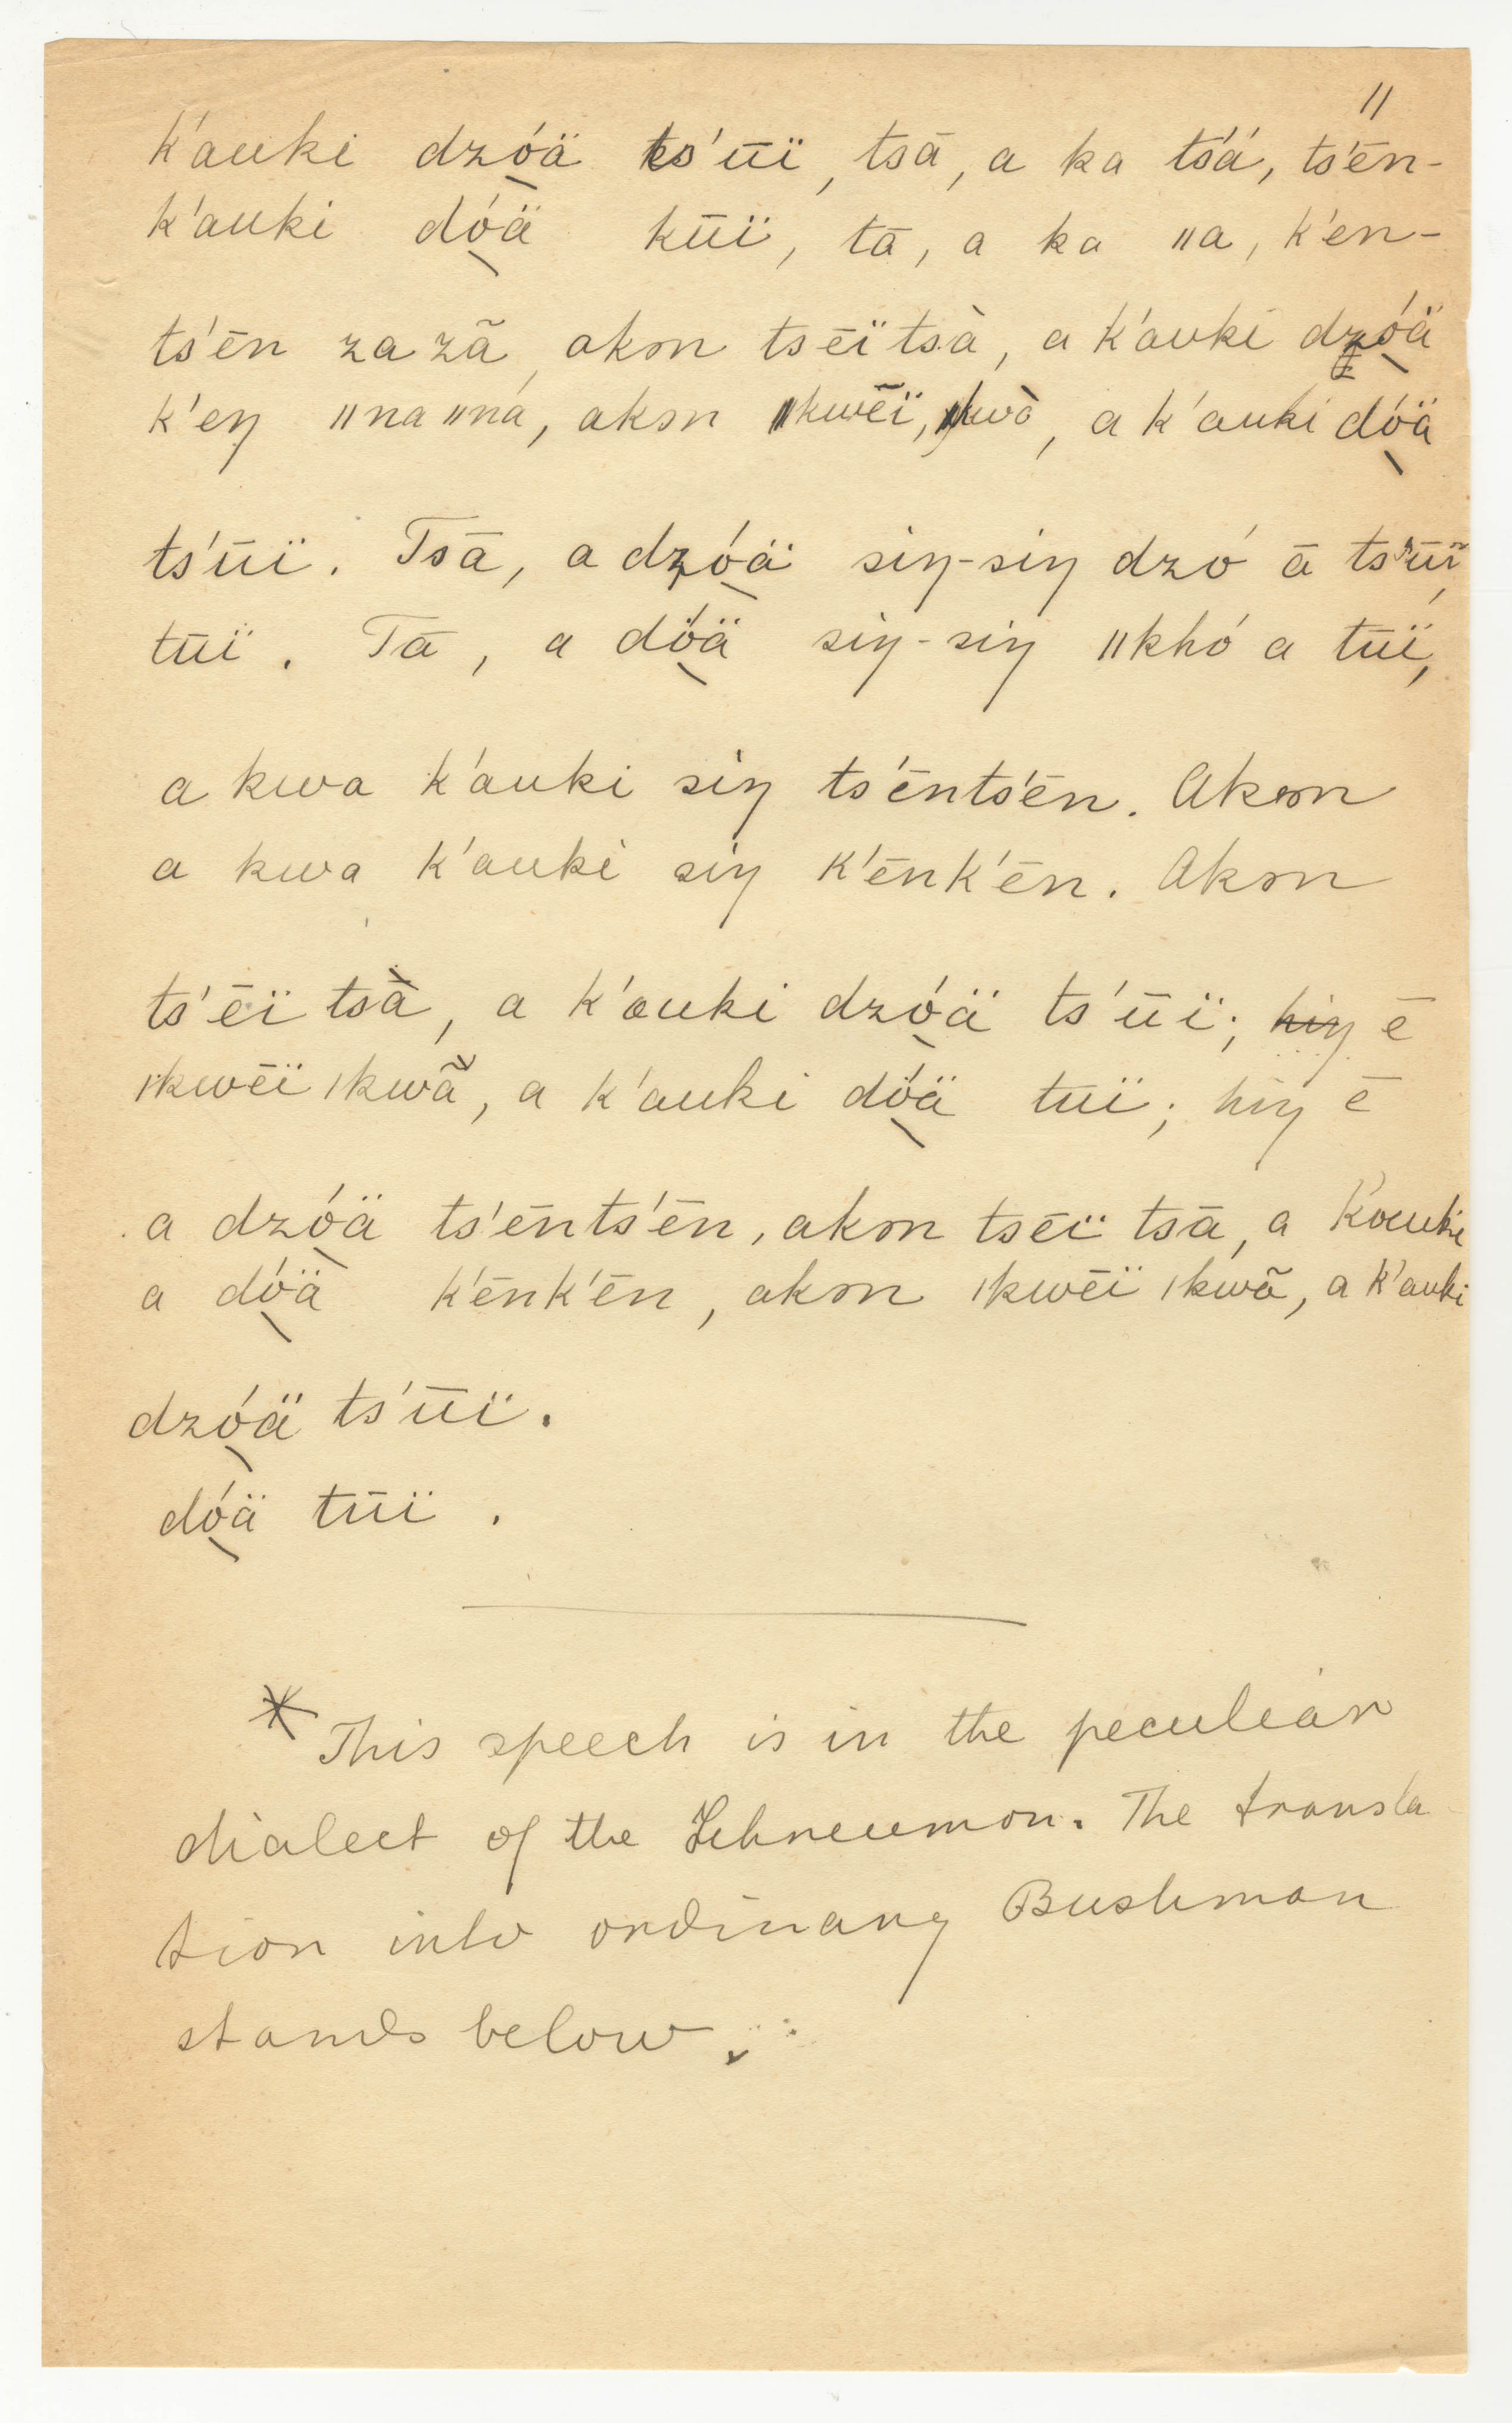 11
k'auki dzóä ts'ūï, tsā, a ka tsʼá, ts'ēn-
k'auki dóä kūï, tā, a ka ǁa, k'en-
ts'ēn zazã, akɜn tsēïtsà, a k'auki dzóä
k'eŋ ǁnaǁná, akɜn ǁkwēï, ǁkwà, a k'auki dóä
ts'ūï. Tsā, a dzóä siŋ-siŋ dzó ā ts'ūï,
tūï. Tā, a dóä siŋ-siŋ ǁkhó a tūï,
a kwa k'auki siŋ ts'ēnts'ēn. Akɜn
a kwa k'auki siŋ k'ēnk'ēn. Akɜn
ts'ēï tsà, a k'auki dzóä ts'ūï; hiŋ ē
ǀkwēï ǀkwã, a k'auki dóä tūï; hiŋ ē
a dzóä ts'ēnts'ēn, akɜn tsēï tsā, a k'auki
a dóä k'ēnk'ēn, akɜn ǀkwēï ǀkwã, a k'auki
dzóä ts'ūï.
dóä tūï.
* This speech is in the peculiar
dialect of the Ichneumon. The transla
tion into ordinary Bushman
stands below.